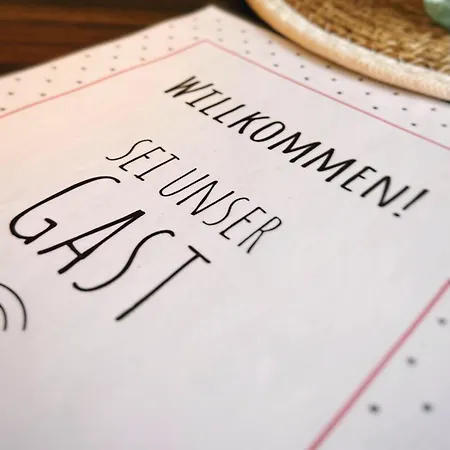 WILLKOMMEN!
SEI UNSER
GAST